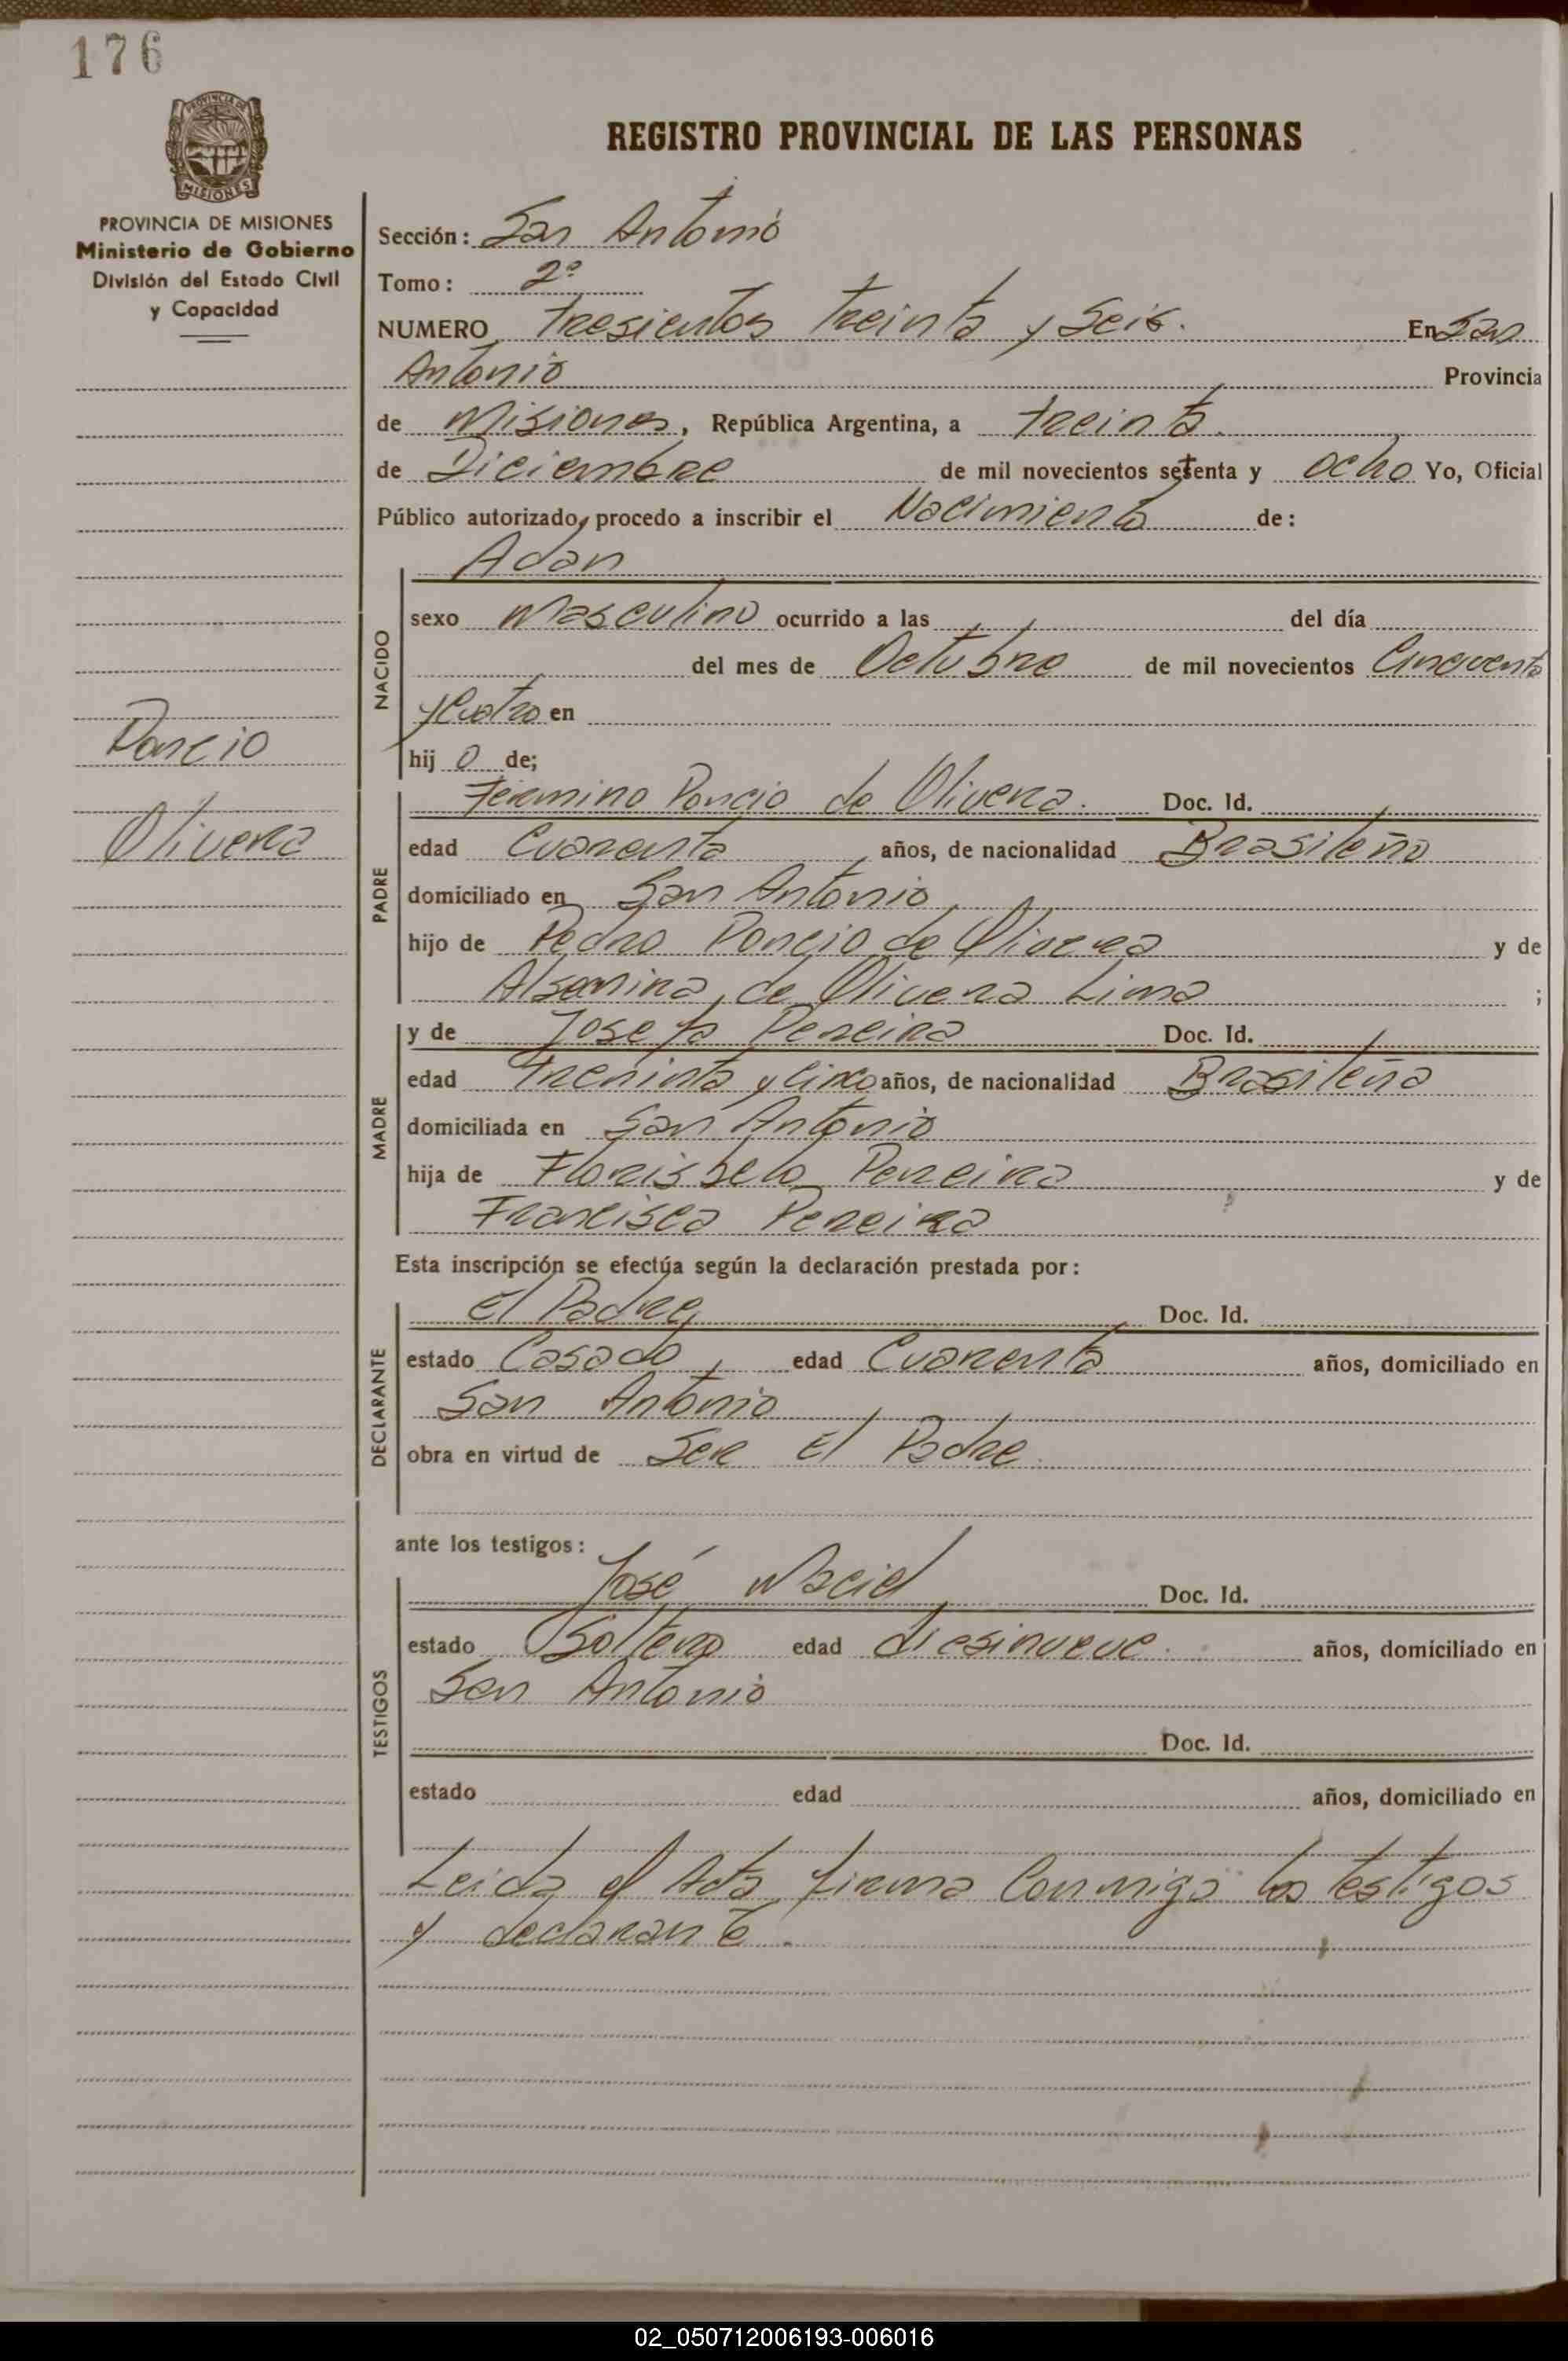 176
PROVINCIA DE MISIONES
REGISTRO PROVINCIAL DE LAS PERSONAS
PROVINCIA DE MISIONES
Ministerio de Gobierno
División del Estado Civil
y Capacidad
Sección: San Antonio
Tomo: 2º
NUMERO Tresientos treinta y Seis. En San
Antonio Provincia
de Misiones, República Argentina, a treinta
de Diciembre de mil novecientos setenta y ocho Yo, Oficial
Público autorizado, procedo a inscribir el Nacimiento de:
Adan
NACIDO
sexo Masculino ocurrido a las del día
del mes de Octubre de mil novecientos Cincuenta
y Cuatro en
hij o de;
Poncio
Olivera
PADRE
Fermino Poncio de Olivera. Doc. Id.
edad Cuarenta años, de nacionalidad Brasileño
domiciliado en San Antonio
hijo de Pedro Poncio de Olivera y de
de Olivera Lima ;
MADRE
y de Josefa Pereira Doc. Id.
edad Treninta y Cinco años, de nacionalidad Brasileña
domiciliada en San Antonio
hija de Pereira y de
Francisca Pereira
Esta inscripción se efectúa según la declaración prestada por:
DECLARANTE
El Padre Doc. Id.
estado Casado, edad Cuarenta años, domiciliado en
San Antonio
obra en virtud de Ser El Padre
ante los testigos:
TESTIGOS
José Maciel Doc. Id.
estado Soltero edad diesinueve. años, domiciliado en
San Antonio
Doc. Id.
estado edad años, domiciliado en
Leida el Acta, firma Conmigo los testigos
y declarante.
02_050712006193-006016